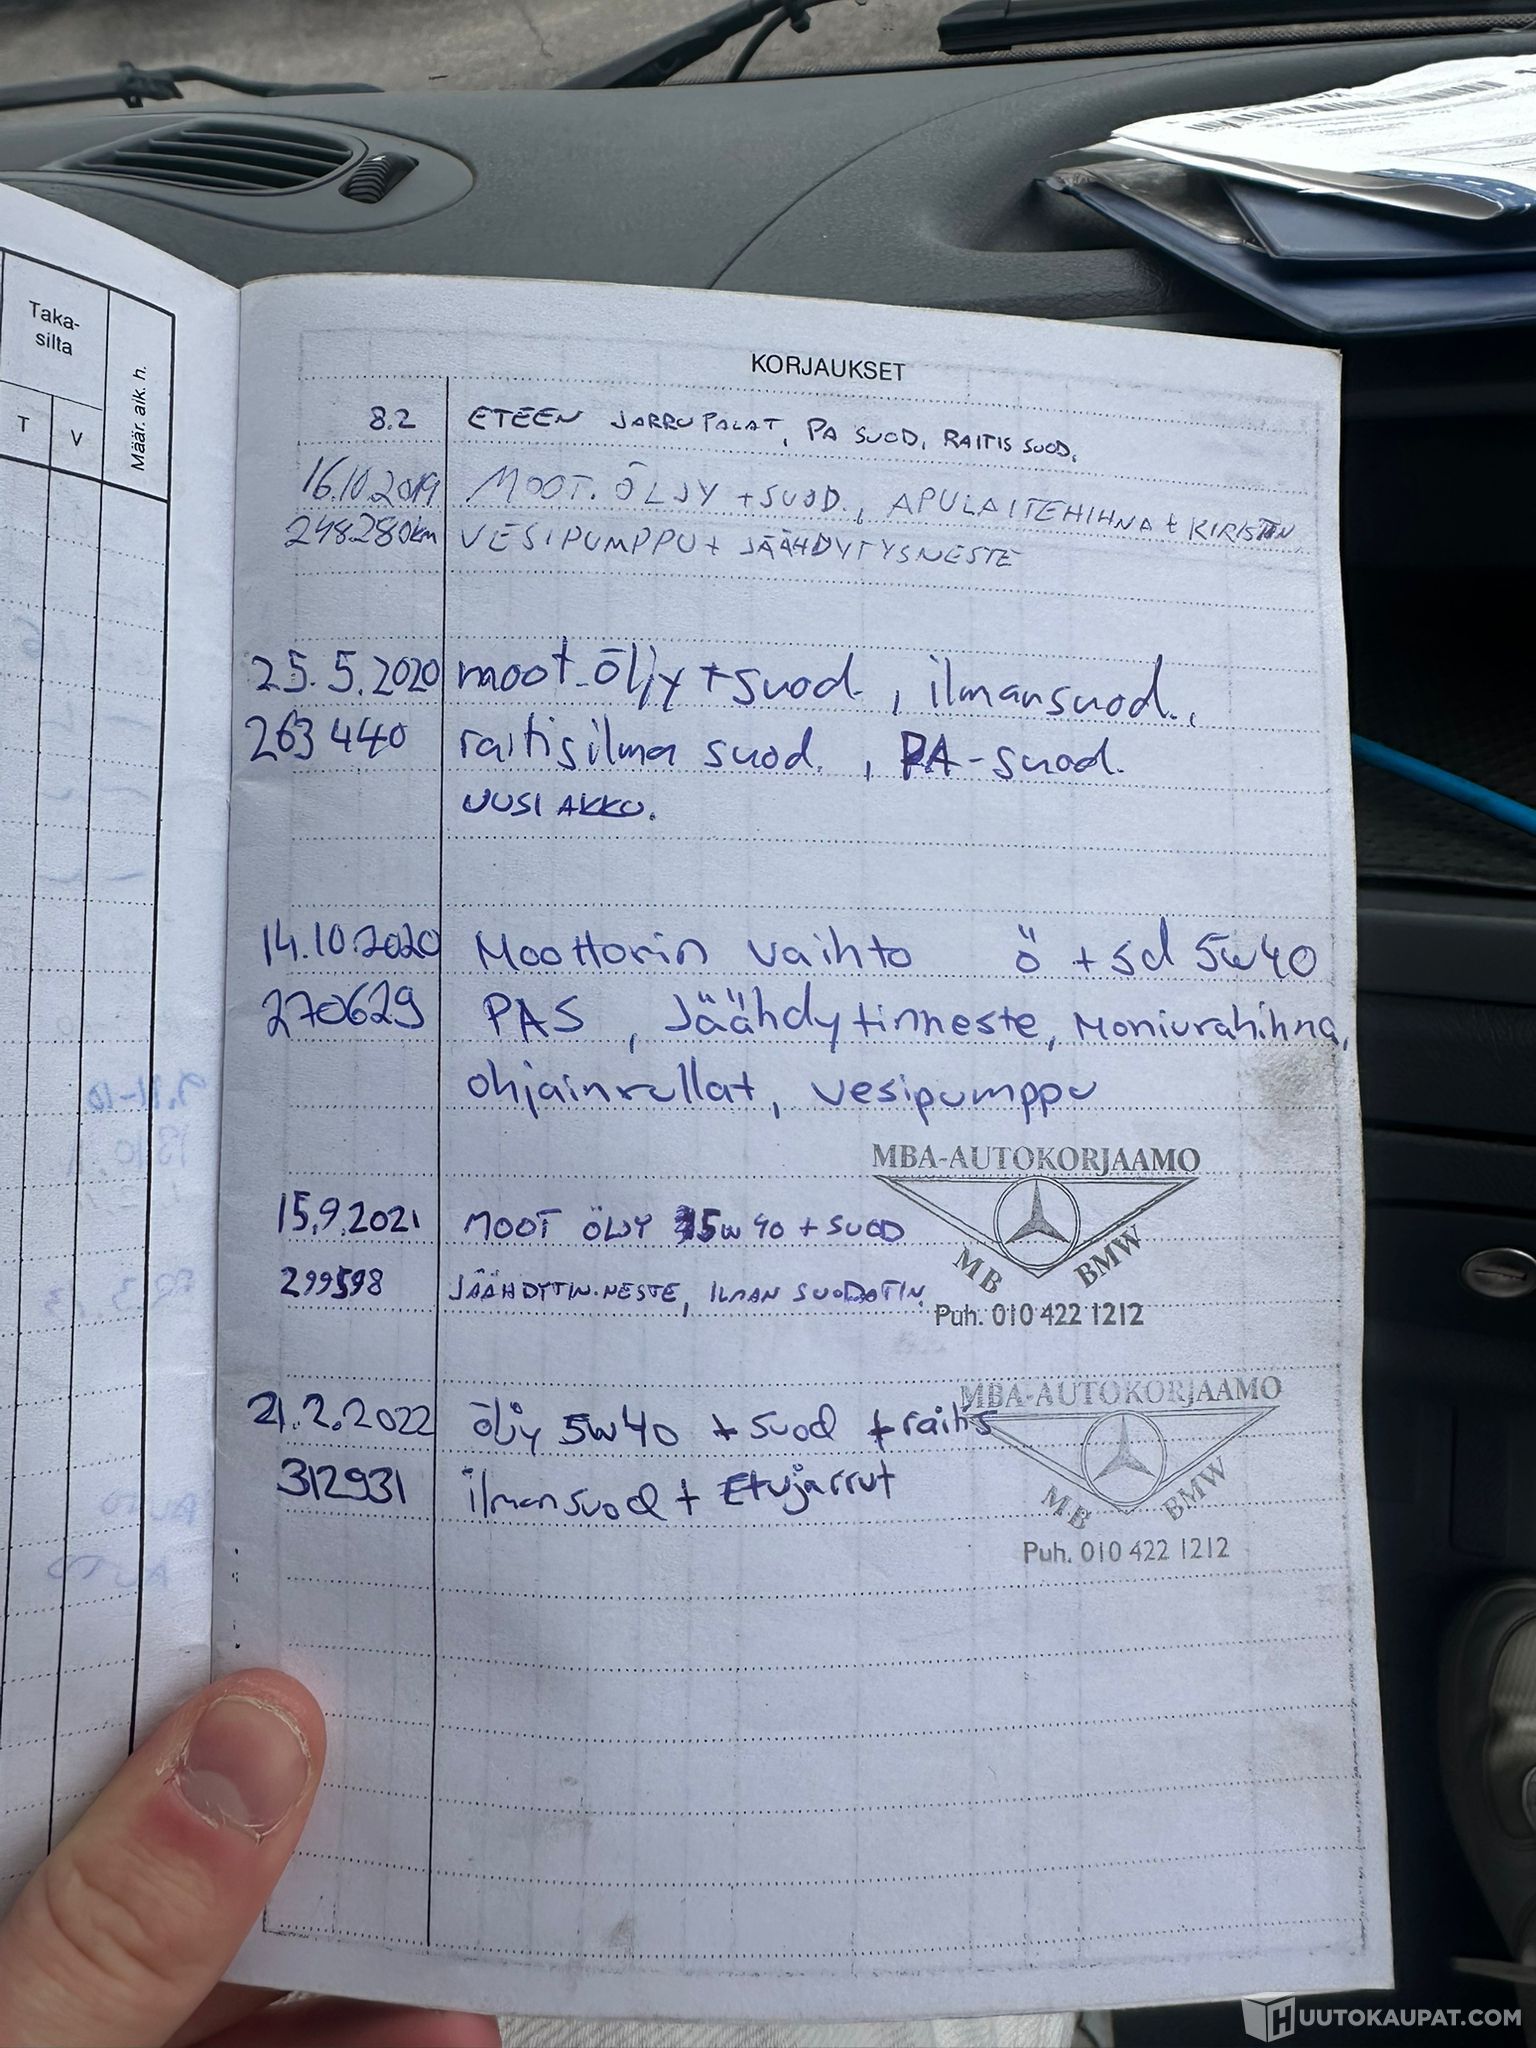 Taka-
silta
T
V
Määr. aik. h.
KORJAUKSET
8.2 ETEEN JARRUPALAT, PA SUOD, RAITIS SUOD.
16.10.2019 MOOT. ÖLJY + SUOD., APULAITEHIHNA + KIRISTIN
248280km VESIPUMPPU + JÄÄHDYTYSNESTE
25.5.2020 moot.öljy + suod., ilmansuod.,
263440 raitisilma suod., PA-suod.
UUSI AKKU.
14.10.2020 Moottorin vaihto ö + sd 5w40
270629 PAS, Jäähdytinneste, Moniurahihna,
ohjainrullat, vesipumppu
MBA-AUTOKORJAAMO
15.9.2021 MOOT ÖLJY 5w40 + SUOD
MB BMW
299598 JÄÄHDYTIN.NESTE, ILMAN SUODATIN.
Puh. 010 422 1212
MBA-AUTOKORJAAMO
21.2.2022 öljy 5w40 + suod + raitis
312931 ilmansuod + Etujarrut
MB BMW
Puh. 010 422 1212
HUUTOKAUPAT.COM